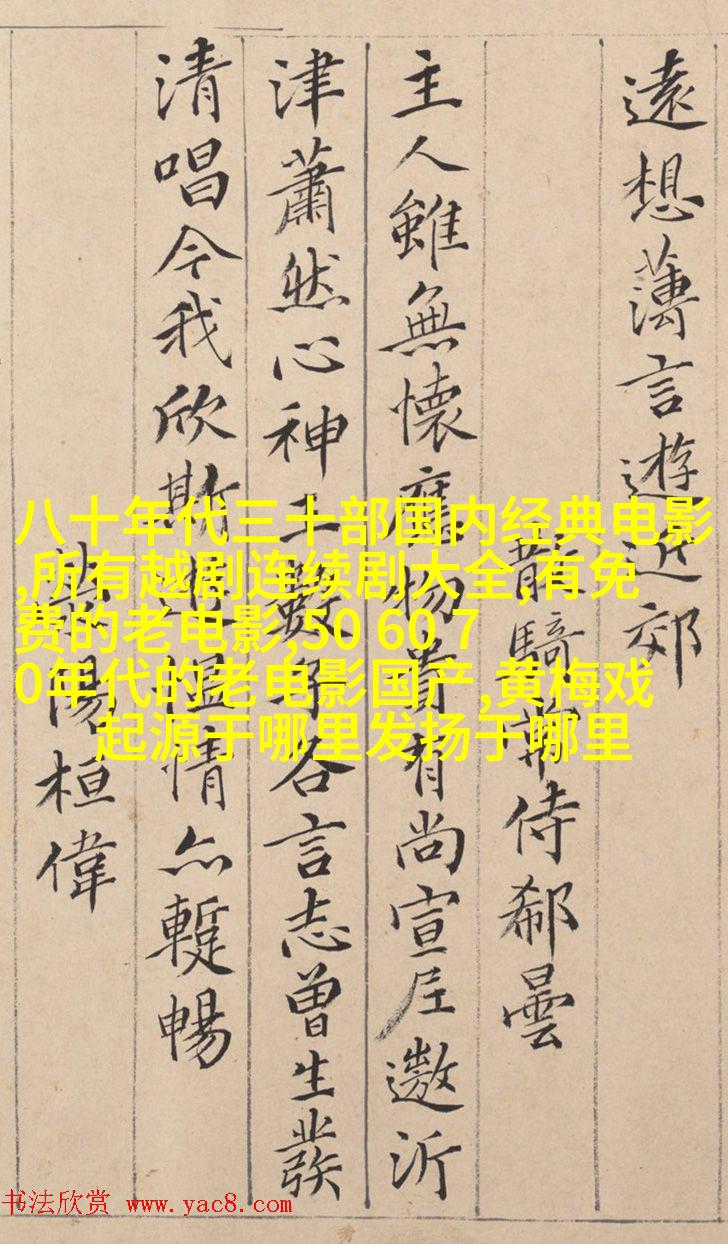 遠想薄言遊近郊
散騎常侍郗曇
主人雖無懷應物貴有尚宣尼遨沂
津蕭然心神王數子各言志曾生發
清唱今我欣斯遊慍情亦蹔暢
滎陽桓偉
八十年代三十部国内经典电影
,所有越剧连续剧大全,有免
费的老电影,50 60 7
0年代的老电影国产,黄梅戏
起源于哪里发扬于哪里
书法欣赏 www.yac8.com